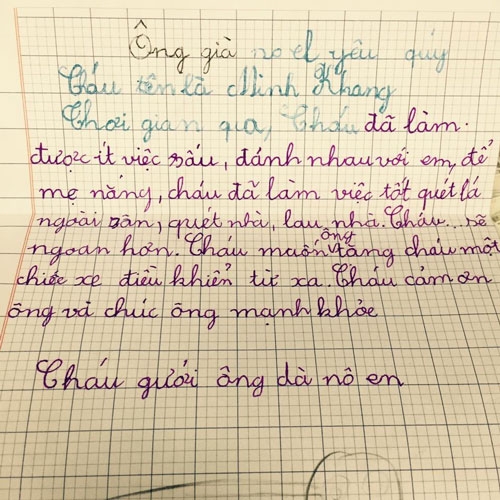 Ông già no el yêu quý
Cháu tên là Minh Khang
Thơi gian qua, Cháu đã làm.
được ít việc sấu, đánh nhau với em, để
mẹ nắng, cháu đã làm việc tốt quét lá
ngoài sân, quét nhà, lau nhà. Cháu... sẽ
ngoan hơn. Cháu muốn ông tăng cháu một
chiếc xe điều khiển từ xa. Cháu cảm ơn
ông và chúc ông mạnh khỏe
Cháu gưới ông dà nô en